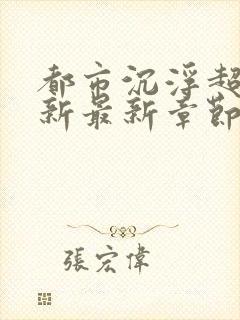 都市沉浮超
新最新章節
張宏偉